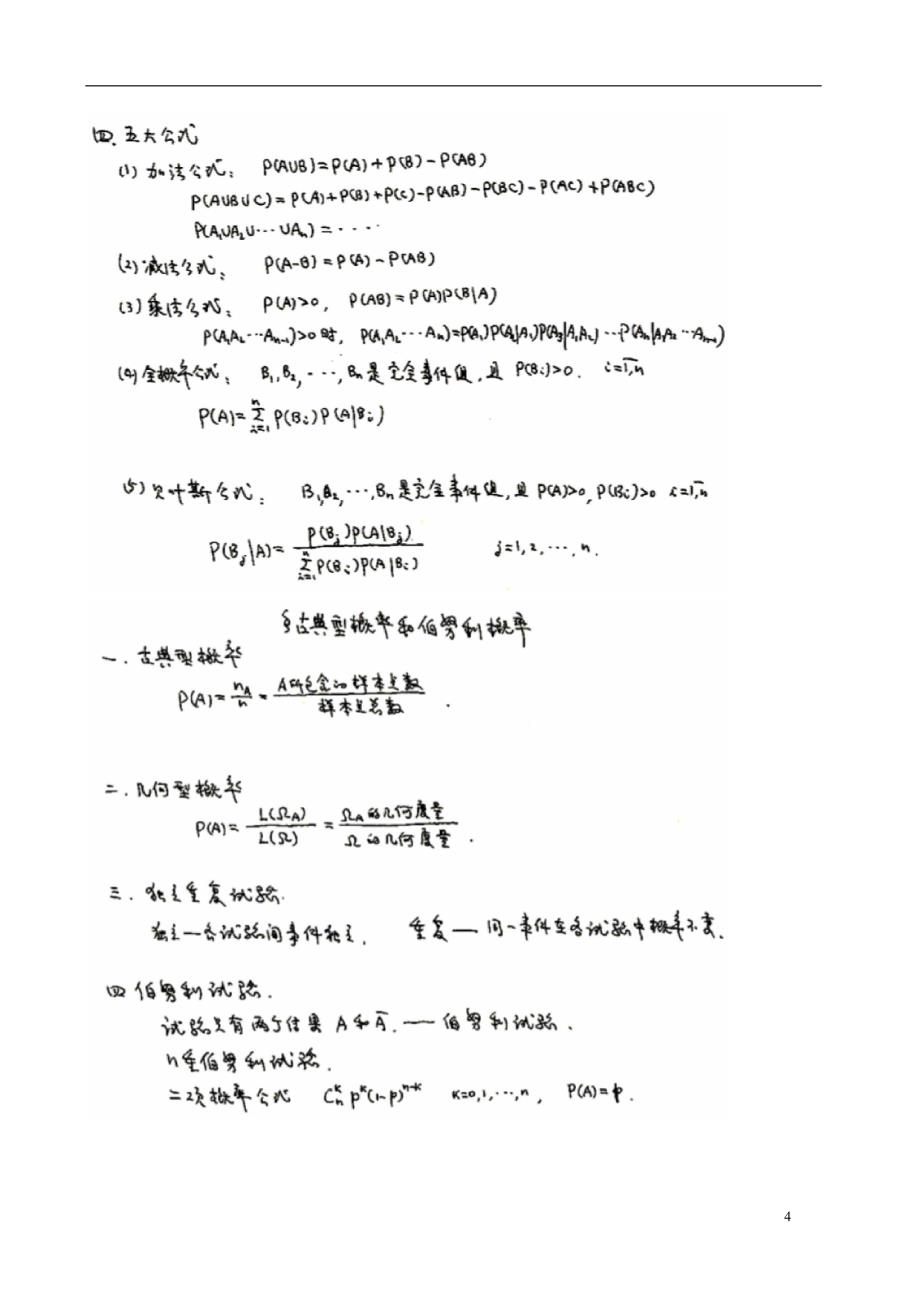 四. 五大公式
(1) 加法公式: P(A∪B)=P(A)+P(B)-P(AB)
P(A∪B∪C)=P(A)+P(B)+P(C)-P(AB)-P(BC)-P(AC)+P(ABC)
P(A₁∪A₂∪···∪Aₙ)=····
(2) 减法公式: P(A-B)=P(A)-P(AB)
(3) 乘法公式: P(A)>0, P(AB)=P(A)P(B|A)
P(A₁A₂···Aₙ₋₁)>0时, P(A₁A₂···Aₙ)=P(A₁)P(A₂|A₁)P(A₃|A₁A₂)···P(Aₙ|A₁A₂···Aₙ₋₁)
(4) 全概率公式: B₁,B₂,···,Bₙ是完全事件组,且 P(Bᵢ)>0. i=1,n
P(A)=∑ᵢ₌₁ⁿ P(Bᵢ)P(A|Bᵢ)
(5) 贝叶斯公式: B₁,B₂,···,Bₙ是完全事件组,且 P(A)>0, P(Bᵢ)>0 i=1,n
P(Bⱼ|A)= P(Bⱼ)P(A|Bⱼ) / ∑ᵢ₌₁ⁿ P(Bᵢ)P(A|Bᵢ) j=1,2,···,n.
§古典型概率和伯努利概率
一. 古典型概率
P(A)= n_A/n = A所包含的样本点数 / 样本点总数 .
二. 几何型概率
P(A)= L(Ω_A)/L(Ω) = Ω_A的几何度量 / Ω的几何度量 .
三. 独立重复试验.
独立—各试验间事件独立, 重复—同一事件在各试验中概率不变.
四 伯努利试验.
试验只有两个结果 A和A̅. — 伯努利试验.
n重伯努利试验.
二项概率公式 Cₙᵏ pᵏ(1-p)ⁿ⁻ᵏ k=0,1,···,n, P(A)=p.
4